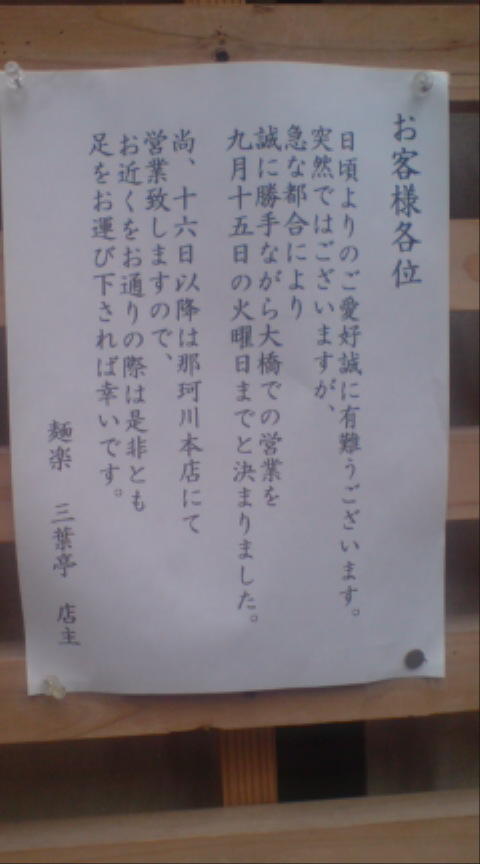 お客様各位
日頃よりのご愛好誠に有難うございます。
突然ではございますが、
急な都合により
誠に勝手ながら大橋での営業を
九月十五日の火曜日までと決まりました。
尚、十六日以降は那珂川本店にて
営業致しますので、
お近くをお通りの際は是非とも
足をお運び下されば幸いです。
麺楽 三葉亭 店主